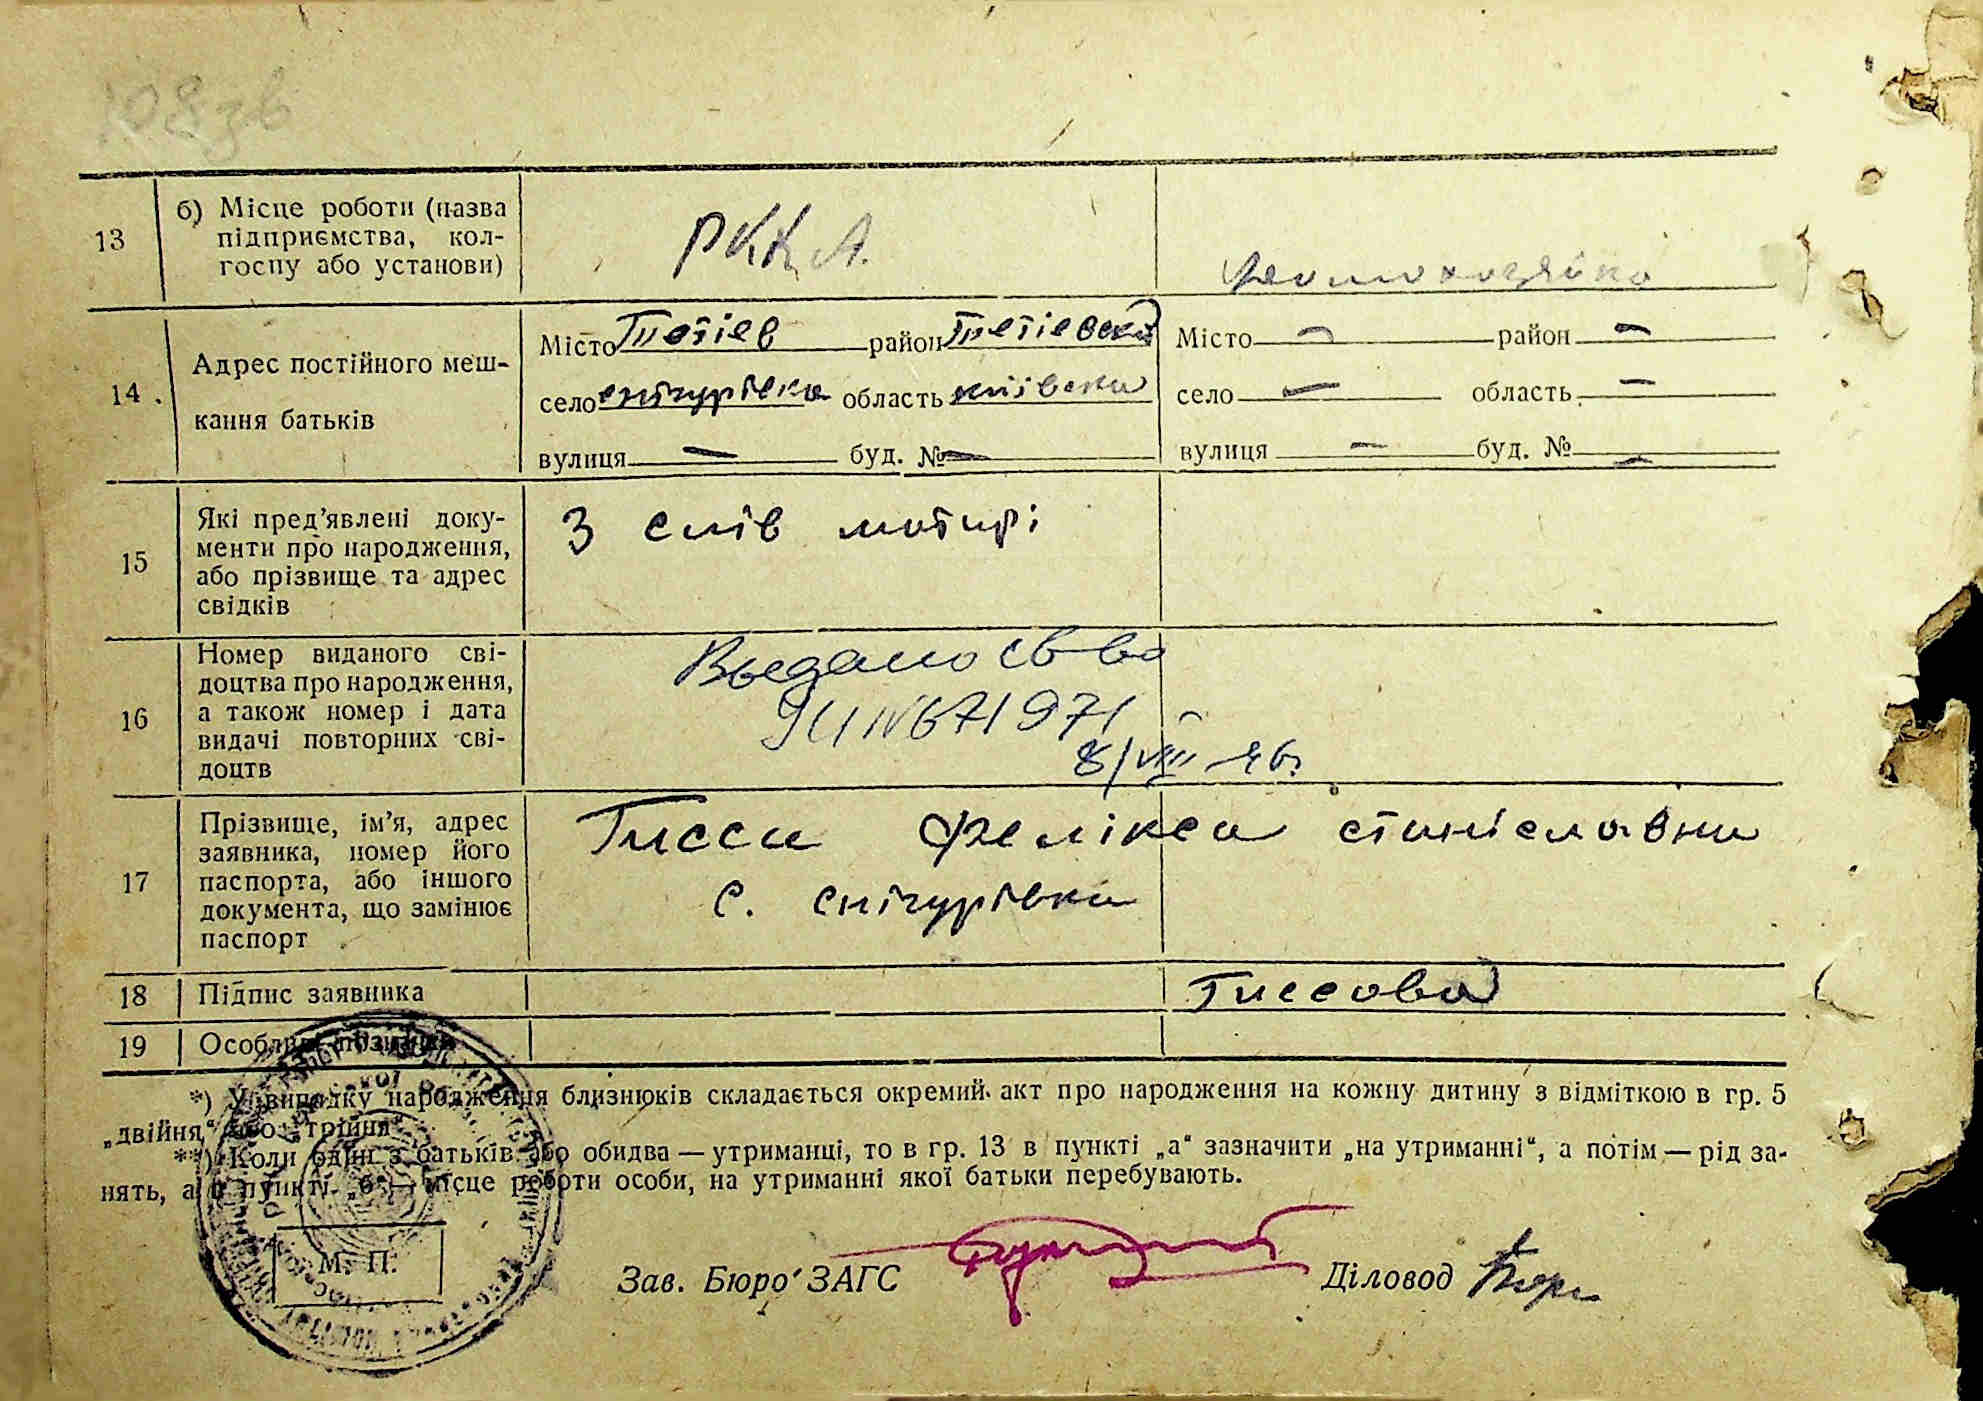 108 зв
13
б) Місце роботи (назва
підприємства, кол-
госпу або установи)
РККА.
домохозяйка
14
Адрес постійного меш-
кання батьків
Місто Тетіев район Тетіевский
село снігурівка область київська
вулиця — буд. № —
Місто — район —
село — область —
вулиця — буд. № —
15
Які пред’явлені доку-
менти про народження,
або прізвище та адрес
свідків
З слів матирі
16
Номер виданого сві-
доцтва про народження,
а також номер і дата
видачі повторних сві-
доцтв
Выдано св-во
N 671971
8/VIII 46г.
17
Прізвище, ім’я, адрес
заявника, номер його
паспорта, або іншого
документа, що замінює
паспорт
Гисса Фелікса станіславна
с. снігурівка
18
Підпис заявника
Гиссова
19
Особливі позначки
*) У випадку народження близнюків складається окремий акт про народження на кожну дитину з відміткою в гр. 5
„двійня“ або „трійня“
**) Коли один з батьків або обидва — утриманці, то в гр. 13 в пункті „а“ зазначити „на утриманні“, а потім — рід за-
нять, а в пункті „б“ — місце роботи особи, на утриманні якої батьки перебувають.
М. П.
Зав. Бюро ЗАГС
Діловод